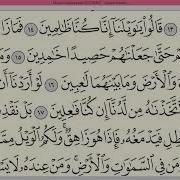 ١٣ قَالُوا۟ يَـٰوَيْلَنَآ إِنَّا كُنَّا ظَـٰلِمِينَ ١٤ فَمَا زَا
هُمْ حَتَّىٰ جَعَلْنَـٰهُمْ حَصِيدًا خَـٰمِدِينَ ١٥ وَمَا
وَٱلْأَرْضَ وَمَا بَيْنَهُمَا لَـٰعِبِينَ ١٦ لَوْ أَرَدْنَآ أَن
تَّخَذْنَـٰهُ مِن لَّدُنَّآ إِن كُنَّا فَـٰعِلِينَ ١٧ بَلْ نَقْذِفُ
طِلِ فَيَدْمَغُهُۥ فَإِذَا هُوَ زَاهِقٌ ۚ وَلَكُمُ ٱلْوَيْلُ مِمَّا
مَن فِى ٱلسَّمَـٰوَٰتِ وَٱلْأَرْضِ ۚ وَمَنْ عِندَهُۥ لَا